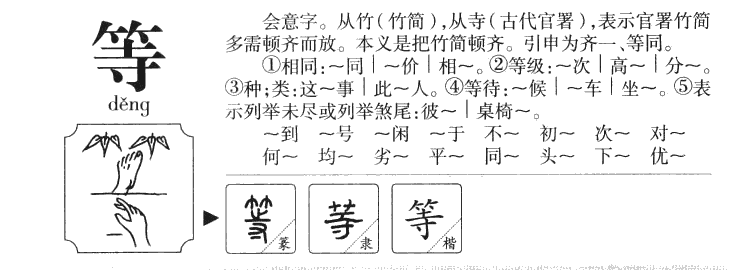 等
děng
会意字。从竹(竹简),从寺(古代官署),表示官署竹简
多需顿齐而放。本义是把竹简顿齐。引申为齐一、等同。
①相同:～同｜～价｜相～。②等级:～次｜高～｜分～。
③种;类:这～事｜此～人。④等待:～候｜～车｜坐～。⑤表
示列举未尽或列举煞尾:彼～｜桌椅～。
～到 ～号 ～闲 ～于 不～ 初～ 次～ 对～
何～ 均～ 劣～ 平～ 同～ 头～ 下～ 优～
等 篆 等 隶 等 楷